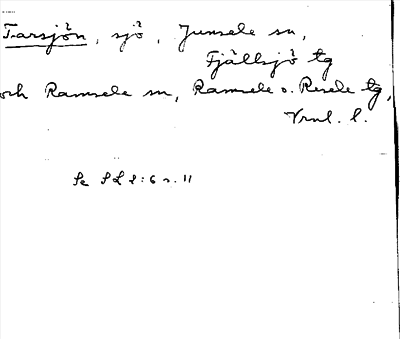 Tarsjön, sjö, Junsele sn,
Fjällsjö tg
och Ramsele sn, Ramsele o. Resele tg,
Vrnl. l.
Se SL 2:6 s. 11